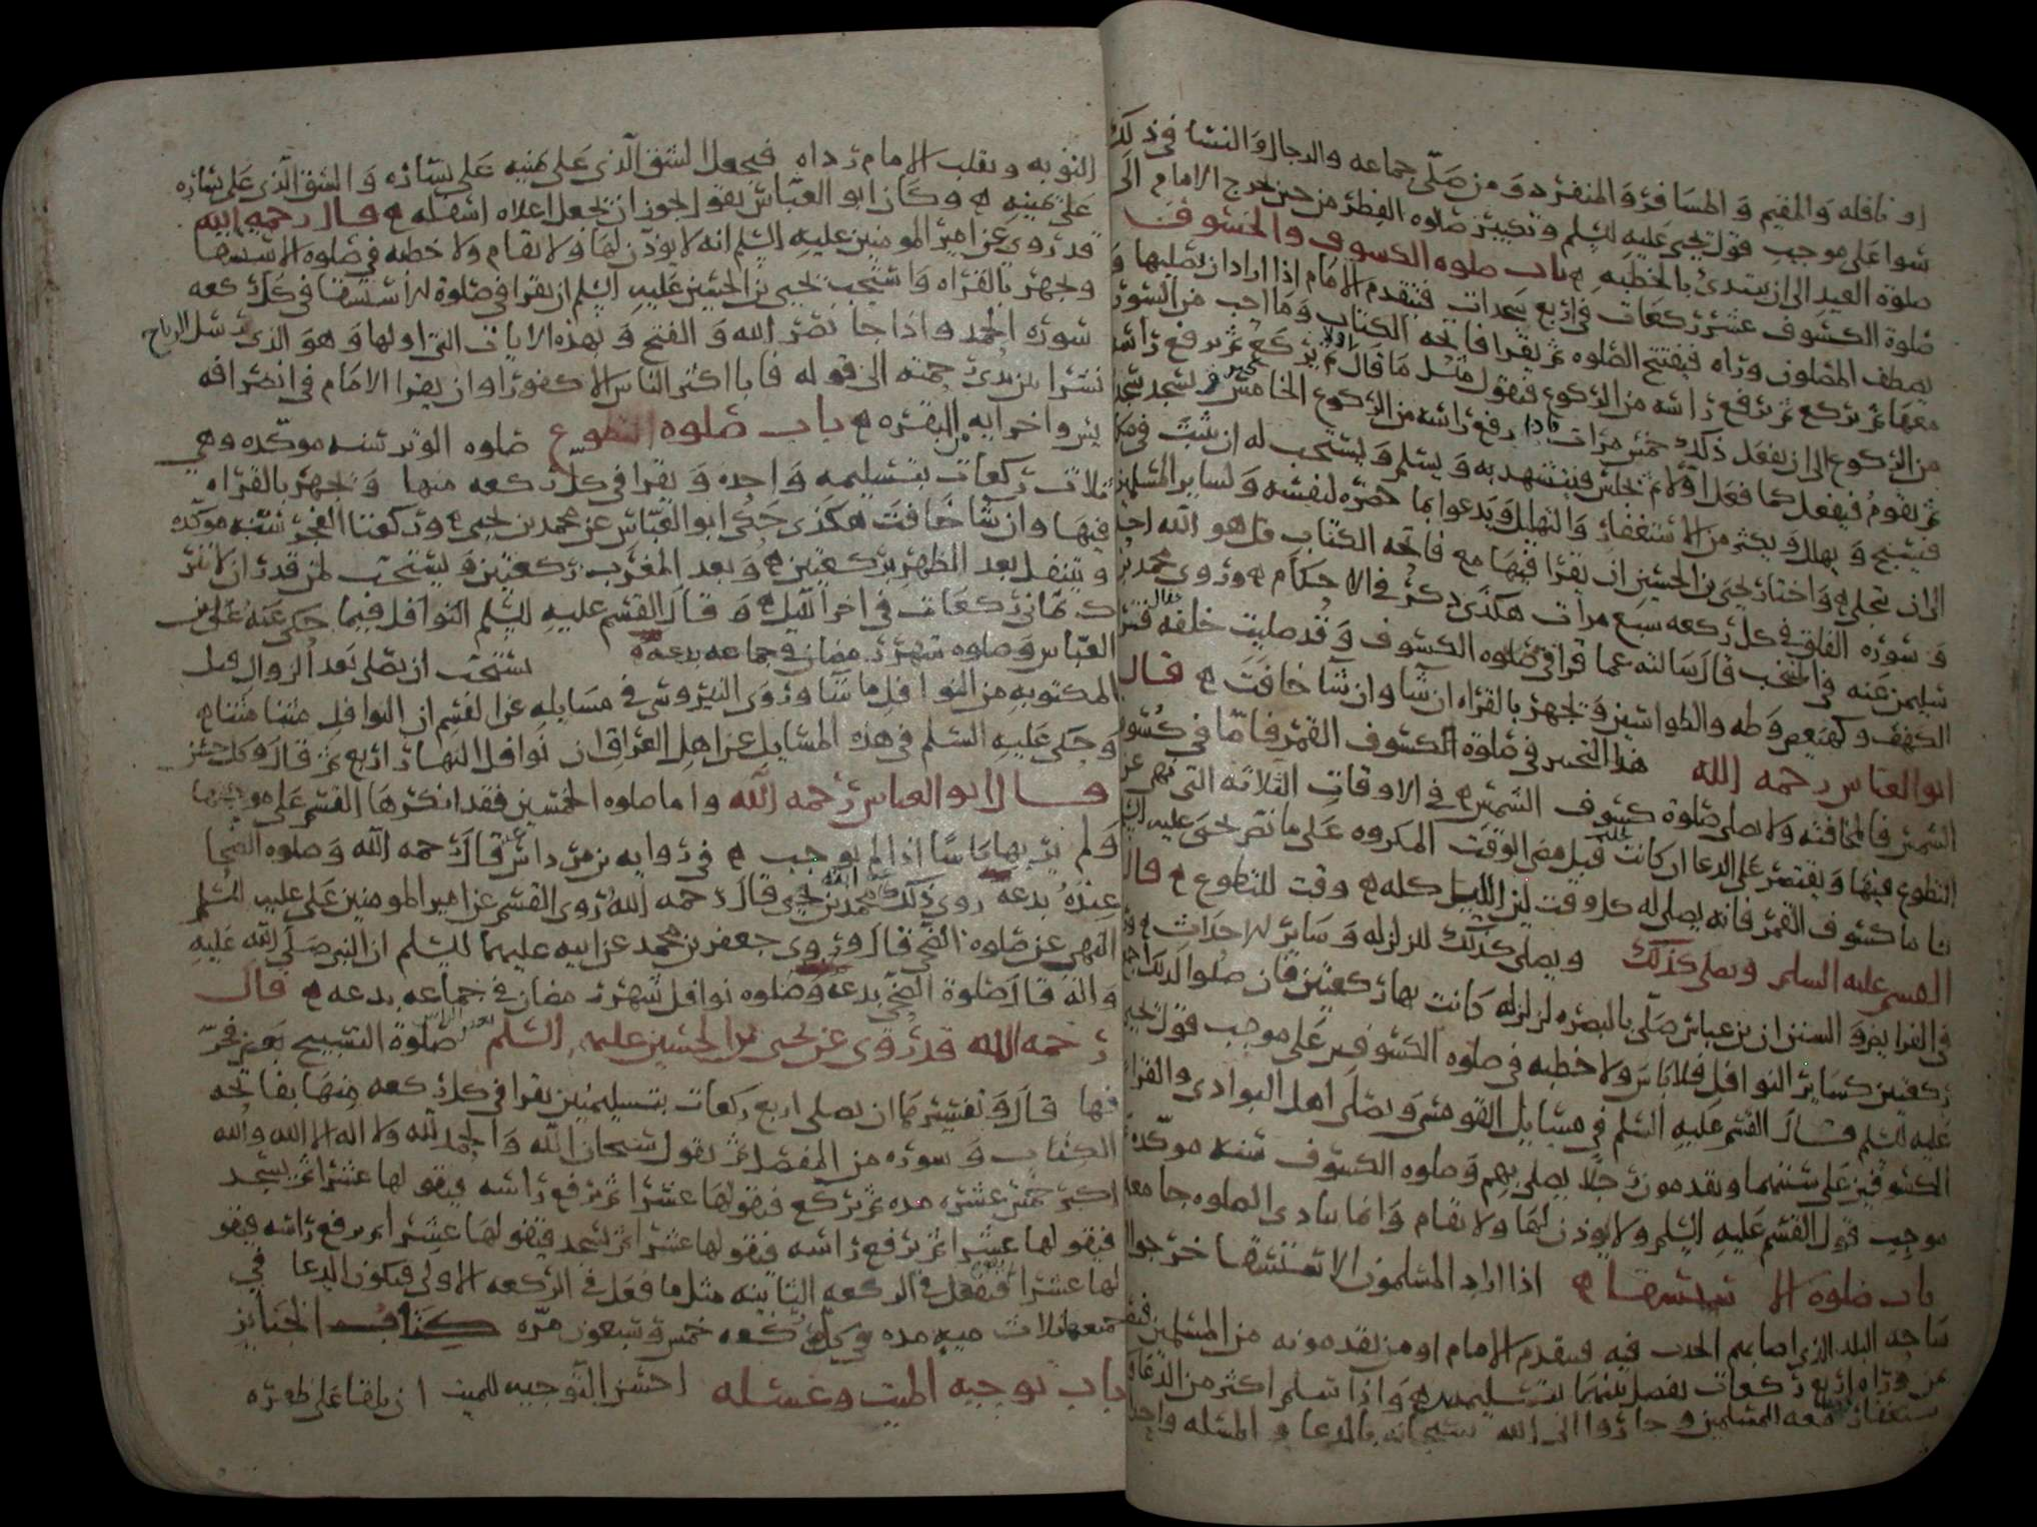 او نافله والمقيم والمسافر والمنفرد ومن صلى جماعه والرجال والنسا في ذلك
سوا على موجب قول يحيى عليه السلم وتكبير صلوه الفطر من حين يخرج الامام الى
صلوة العيد الى ان يبتدئ بالخطبه باب صلوه الكسوف والخسوف
صلوة الكسوف عشر ركعات في اربع سجدات فيتقدم الامام اذا اراد ان يصليها و
يصطف المصلون وراه فيفتتح الصلوه ثم يقرا فاتحه الكتاب وما احب من السور
معها ثم يركع ثم يرفع راسه من الركوع فيقول مثل ما قال اولا ثم يركع ثم يرفع راسه
من الركوع الى ان يفعل ذلك خمس مرات فاذا رفع راسه من الركوع الخامس كبر و يسجد سجد
ثم يقوم فيفعل كما فعل اولا ثم يجلس فيتشهد به ويسلم ويستحب له ان يثبت في مكا
فيسبح ويهلل ويكثر من الاستغفار والتهليل ويدعوا بما حضره لنفسه ولساير المسلمين
الى ان تجلى واختار يحيى بن الحسين ان يقرا فيها مع فاتحه الكتاب قل هو الله احد
وسوره الفلق في كل ركعه سبع مرات هكذى ذكر في الاحكام وروى محمد بن
سليمن عنه في المنتخب قال سالته عما قرا في صلوه الكسوف وقد صليت خلفه فقال
الكهف وكهيعص وطه والطواسين وتجهر بالقراه ان شا وان شا خافت قال
ابو العباس رحمه الله هذا التخيير في صلوة الكسوف القمر فاما في كسوف
الشمس فالمخافته ولا يصلى صلوة كسوف الشمس في الاوقات الثلاثه التي نهي عن
التطوع فيها ويقتصر على الدعا ان كانت قبل مضى الوقت المكروه على ما نص يحيى عليه السلم
فاما كسوف القمر فانه يصلى له كل وقت لان الليل كله وقت للتطوع قال
القسم عليه السلم ويصلى كذلك ويصلى كذلك للزلزله وساير الاحداث
في الفرايض والسنن ان بن عباس صلى بالبصره لزلزله كانت بها ركعتين فان صلوا لذلك
ركعتين كساير النوافل فلا باس ولا خطبه في صلوه الكسوفين على موجب قول يحيى
عليه السلم قال القسم عليه السلم في مسايل القومسى ويصلى اهل البوادى والقرا
الكسوفين على سنتهما ويقدمون رجلا يصلى بهم وصلوه الكسوف سنه موكده
موجب قول القسم عليه السلم ولا يوذن لها ولا تقام وانما ينادى الصلوه جامعه
باب صلوه الاستسقا اذا اراد المسلمون الاستسقا خرجوا
ساحه البلد الذى اصابهم الجدب فيه فيتقدم الامام او من يقدمونه من المسلمين
من وراه اربع ركعات يفصل بينهما بتسليمه واذا سلم اكثر من الدعا
الاستغفار معه المسلمين وجاروا الى الله سبحانه بالدعا و المسله واحد
التوبه ويقلب الامام رداه فيجعل الشق الذى على يمينه على يساره والشق الذى على يساره
على يمينه وكان ابو العباس يقول يجوز ان يجعل اعلاه اسفله قال رحمه الله
قد روى عن امير المومنين عليه السلم انه لا يوذن لها ولا تقام ولا خطبه في صلوه الاستسقا
ويجهر بالقراه واستحب يحيى بن الحسين عليه السلم ان يقرا في صلوة الاستسقا في كل ركعه
سوره الحمد واذا جا نصر الله والفتح وبهذه الايات التي اولها وهو الذي يرسل الرياح
نشرا بين يدى رحمته الى قوله فابا اكثر الناس الا كفورا وان يقرا الامام في انصرافه
يس واخر ايه البقره باب صلوه التطوع صلوه الوتر سنه موكده وهي
ثلاث ركعات بتسليمه واحده ويقرا في كل ركعه منها ويجهر بالقراه
فيها وان شا خافت هكذى حكى ابو العباس عن محمد بن يحيى وركعتا الفجر سنه موكده
ويتنفل بعد الظهر بركعتين وبعد المغرب ركعتين ويستحب لمن قدر ان لا يتر
ك ثماني ركعات في اخر الليل وقال القسم عليه السلم النوافل فيما حكى عنه على بن
العباس وصلوه شهر رمضان في جماعه بدعه يستحب ان يصلى بعد الزوال قبل
المكتوبه من النوافل ما شا وروى النيروسى في مسايله عن القسم ان النوافل مثنا مثنا
وحكى عليه السلم في هذه المسايل عن اهل العراق ان نوافل النهار اربع ثم قال وكل حسن
قال ابو العباس رحمه الله واما صلوه الخمسين فقد انكرها القسم على موجبها
ولم ير بها باسا اذا لم يوجب في روايه بن مرداس قال رحمه الله وصلوه الضحا
عنده بدعه روى ذلك محمد بن يحيى قال رحمه الله روى القسم عن امير المومنين على عليه السلم
النهى عن صلوه الضحى قال وروى جعفر بن محمد عن ابيه عليهما السلم ان النبي صلى الله عليه
واله قال صلوة الضحى بدعه وصلوه نوافل شهر رمضان في جماعه بدعه قال
رحمه الله قد روى عن يحيى بن الحسين عليه السلم صلوة التسبيح
فيها قال وتفسيرها ان يصلى اربع ركعات بتسليمتين يقرا في كل ركعه منها بفاتحه
الكتاب وسوره من المفصل ثم يقول سبحان الله والحمد لله ولا اله الا الله والله
اكبر خمس عشره مره ثم يركع فيقولها عشرا ثم يرفع راسه فيقولها عشرا ثم يسجد
فيقولها عشرا ثم يرفع راسه فيقولها عشرا ثم يسجد فيقولها عشرا ثم يرفع راسه فيقو
لها عشرا فيفعل في الركعه الثانيه مثل ما فعل في الركعه الاولى فيكون الدعا في
جميعها ثلاث ميه مره في كل ركعه خمس وسبعون مره كتاب الجنايز
باب توجيه الميت وغسله احسن التوجيه للميت ان يلقا على ظهره